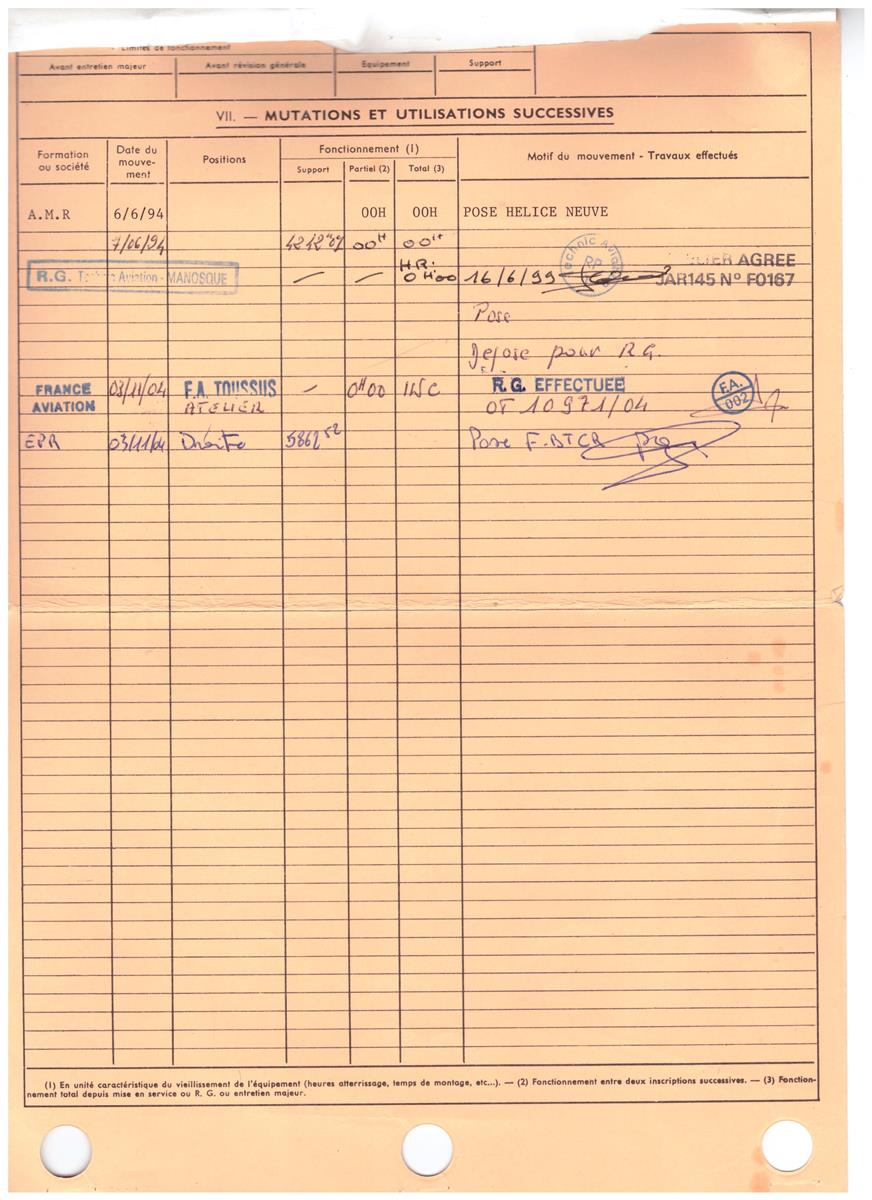 Limites de fonctionnement
Avant entretien majeur Avant révision générale Equipement Support
VII. — MUTATIONS ET UTILISATIONS SUCCESSIVES
Formation ou société Date du mouve-ment Positions Fonctionnement (1) Support Partiel (2) Total (3) Motif du mouvement - Travaux effectués
A.M.R 6/6/94 00H 00H POSE HELICE NEUVE
7/06/94 4242 07 00H 00H
R.G. Technic Aviation - MANOSQUE — — H.R: 0H00 16/6/99 Technic Aviation RP AGREE
JAR145 N° F0167
Pose
Depose pour R.G.
FRANCE AVIATION 03/11/04 F.A. TOUSSUS ATELIER — 0H00 R.G. EFFECTUEE F.A. 002
OT 10971/04
EPR 03/11/04 Droite 5862 52 Pose F.BTCR
(1) En unité caractéristique du vieillissement de l'équipement (heures atterrissage, temps de montage, etc...). — (2) Fonctionnement entre deux inscriptions successives. — (3) Fonction-
nement total depuis mise en service ou R. G. ou entretien majeur.